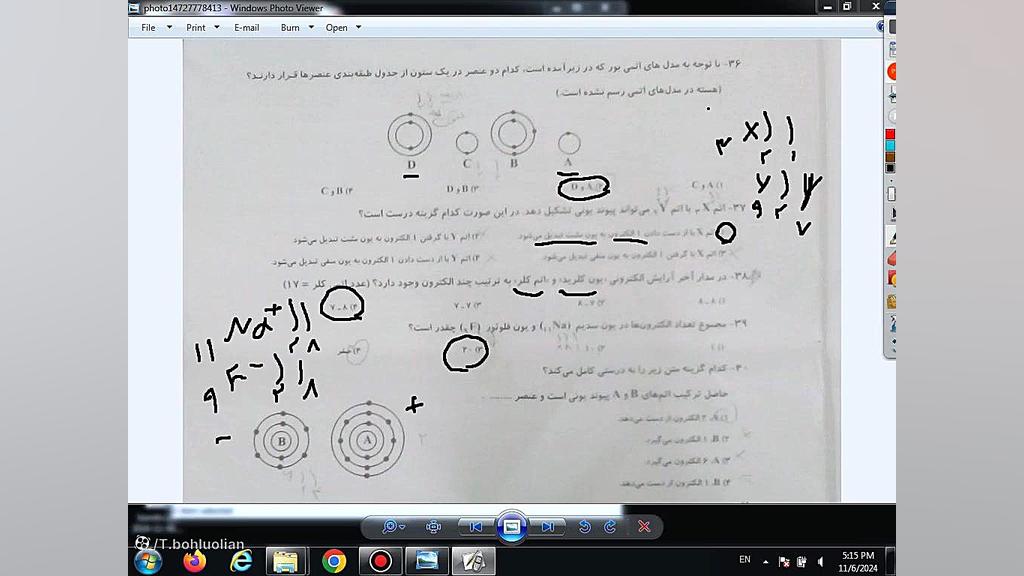 photo14727778413 - Windows Photo Viewer
File Print E-mail Burn Open
۳۶- با توجه به مدل های اتمی بور که در زیر آمده است، کدام دو عنصر در یک ستون از جدول طبقه‌بندی عنصرها قرار دارند؟
(هسته در مدل‌های اتمی رسم نشده است.)
D C B A
۱) A و C
۲) A و D
۳) B و D
۴) B و C
۳۷- اتم X با اتم Y می‌تواند پیوند یونی تشکیل دهد. در این صورت کدام گزینه درست است؟
اتم X با از دست دادن ۱ الکترون به یون مثبت تبدیل می‌شود.
۲) اتم Y با گرفتن ۱ الکترون به یون مثبت تبدیل می‌شود.
۳) اتم X با گرفتن ۱ الکترون به یون منفی تبدیل می‌شود.
۴) اتم Y با از دست دادن ۱ الکترون به یون منفی تبدیل می‌شود.
۳۸- در مدار آخر آرایش الکترونی «یون کلرید» و «اتم کلر» به ترتیب چند الکترون وجود دارد؟ (عدد اتمی کلر = ۱۷)
۱) ۸-۸
۲) ۷-۸
۳) ۷-۷
۴) ۸-۷
۳۹- مجموع تعداد الکترون‌ها در یون سدیم (₁₁Na) و یون فلوئور (₉F) چقدر است؟
۳) ۲۰
۴) صفر
۴۰- کدام گزینه متن زیر را به درستی کامل می‌کند؟
حاصل ترکیب اتم‌های B و A پیوند یونی است و عنصر ..........
۱) A، ۲ الکترون از دست می‌دهد.
۲) B، ۱ الکترون می‌گیرد.
۳) A، ۶ الکترون می‌گیرد.
۴) B، ۱ الکترون از دست می‌دهد.
۳ X ) )
۲ ۱
۹ Y )
۲ ۷
۱۱ Na+ ) )
۲ ۸
۹ F- ) )
۲ ۸
- B A +
/T.bohluolian
EN
5:15 PM
11/6/2024